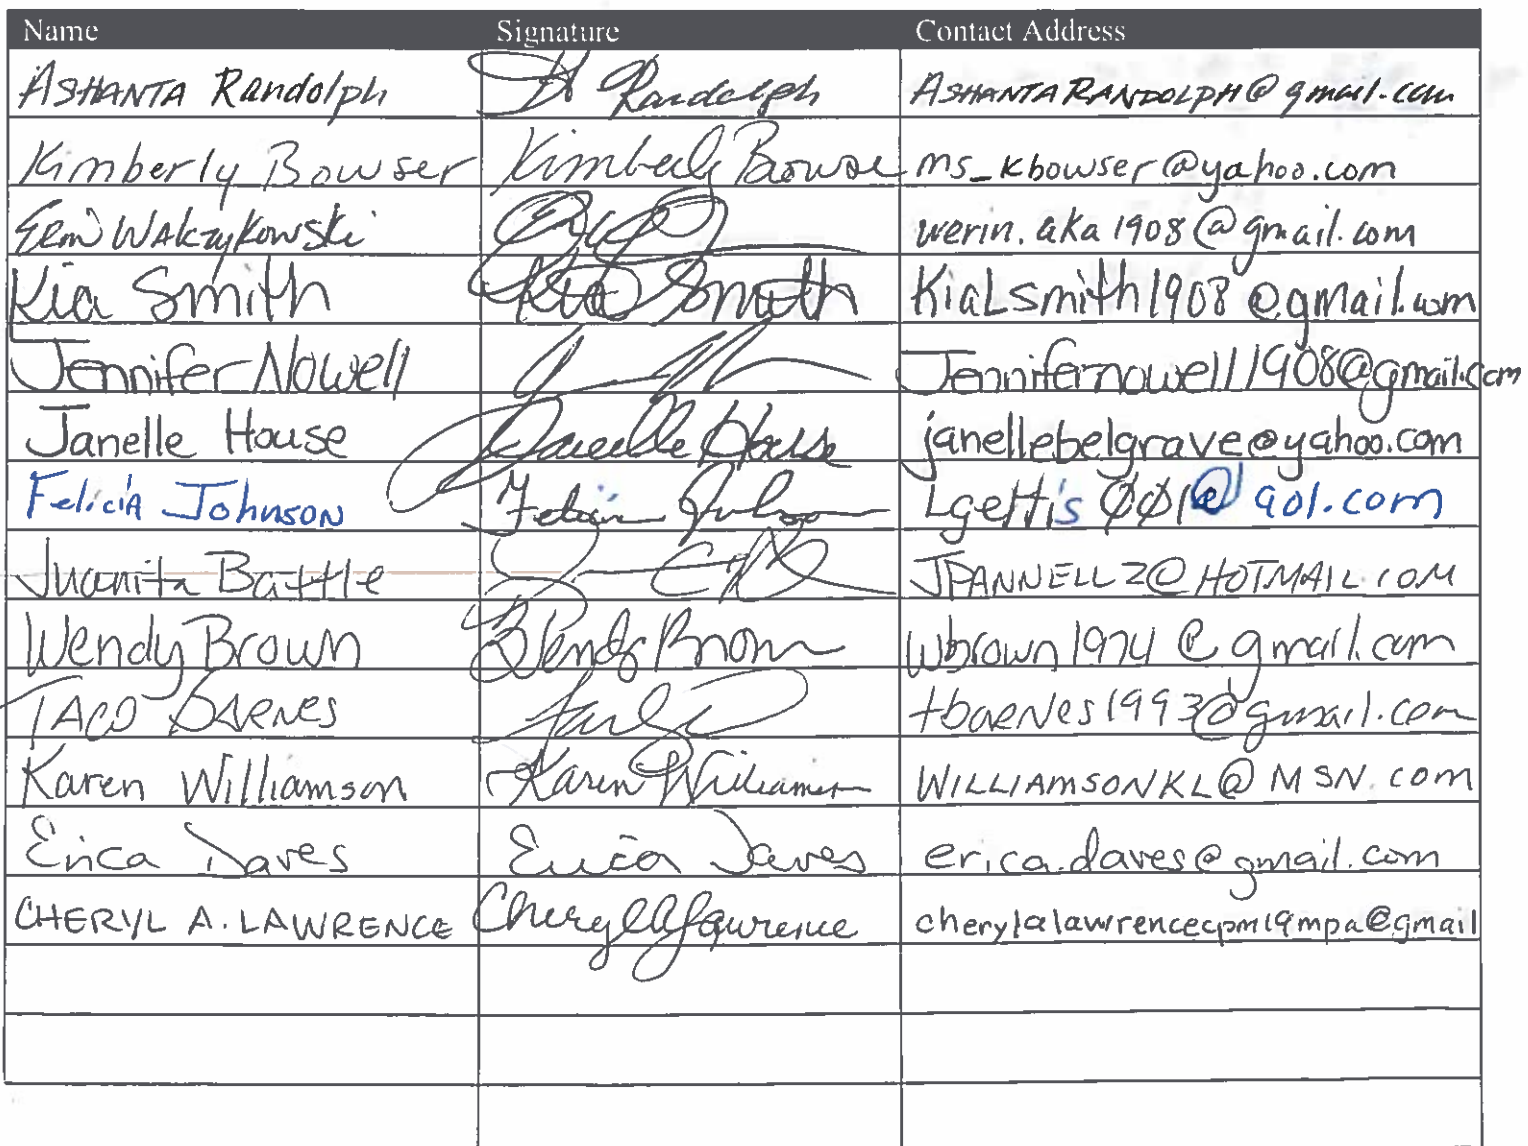 Name Signature Contact Address
ASHANTA Randolph A Randolph ASHANTARANDOLPH@gmail.com
Kimberly Bowser Kimberly Bowse ms_kbowser@yahoo.com
Erin WALczykowski werin.aka1908@gmail.com
Kia Smith Kia Smith KiaLsmith1908@gmail.com
Jennifer Nowell Jennifernowell1908@gmail.com
Janelle House Janelle House janellebelgrave@yahoo.com
Felicia Johnson Felicia Johnson Lgettis001@aol.com
Juanita Battle JPANNELL2@HOTMAIL.COM
Wendy Brown Wendy Brown wbrown1974@gmail.com
TACO BARNES tbarnes1993@gmail.com
Karen Williamson Karen Williamson WILLIAMSONKL@MSN.com
Erica Daves Erica Daves erica.daves@gmail.com
CHERYL A. LAWRENCE Cheryl A Lawrence cherylalawrencecpm19mpa@gmail